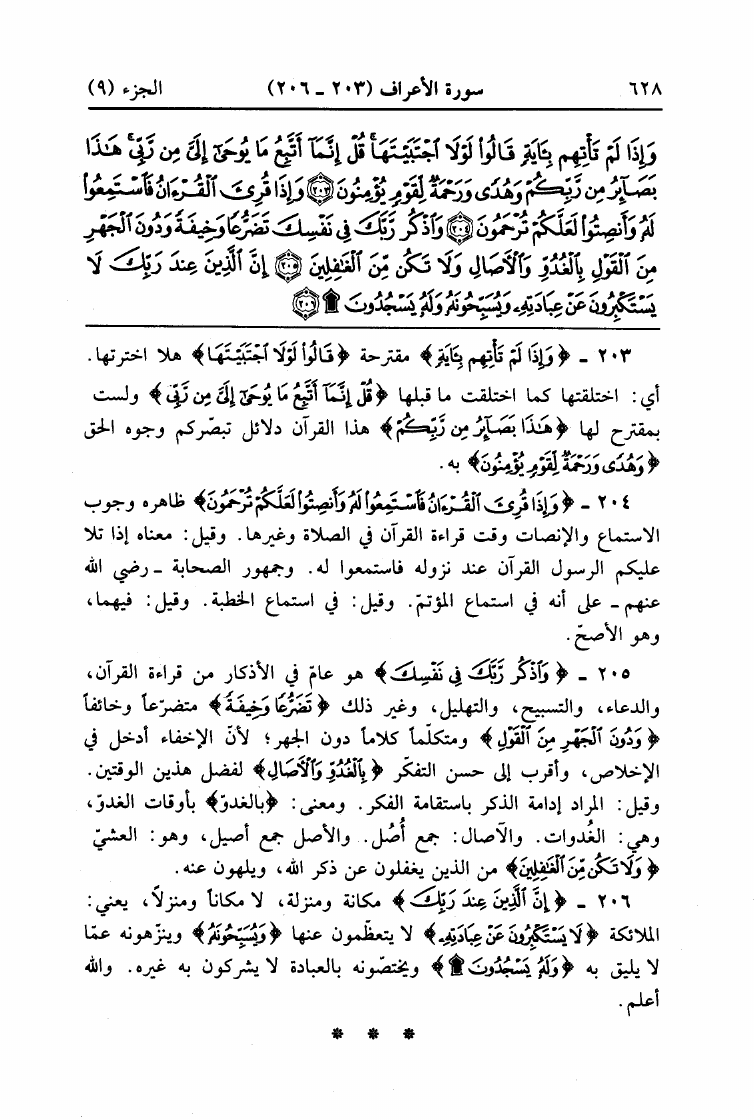 ٦٢٨ سورة الأعراف (٢٠٣ ـ ٢٠٦) الجزء (٩)
وَإِذَا لَمْ تَأْتِهِم بِـَٔايَةٍ قَالُوا۟ لَوْلَا ٱجْتَبَيْتَهَا ۚ قُلْ إِنَّمَآ أَتَّبِعُ مَا يُوحَىٰٓ إِلَىَّ مِن رَّبِّى ۚ هَـٰذَا
بَصَآئِرُ مِن رَّبِّكُمْ وَهُدًى وَرَحْمَةٌ لِّقَوْمٍ يُؤْمِنُونَ ﴿٢٠٣﴾ وَإِذَا قُرِئَ ٱلْقُرْءَانُ فَٱسْتَمِعُوا۟
لَهُۥ وَأَنصِتُوا۟ لَعَلَّكُمْ تُرْحَمُونَ ﴿٢٠٤﴾ وَٱذْكُر رَّبَّكَ فِى نَفْسِكَ تَضَرُّعًا وَخِيفَةً وَدُونَ ٱلْجَهْرِ
مِنَ ٱلْقَوْلِ بِٱلْغُدُوِّ وَٱلْـَٔاصَالِ وَلَا تَكُن مِّنَ ٱلْغَـٰفِلِينَ ﴿٢٠٥﴾ إِنَّ ٱلَّذِينَ عِندَ رَبِّكَ لَا
يَسْتَكْبِرُونَ عَنْ عِبَادَتِهِۦ وَيُسَبِّحُونَهُۥ وَلَهُۥ يَسْجُدُونَ ۩ ﴿٢٠٦﴾
٢٠٣ ـ ﴿وَإِذَا لَمْ تَأْتِهِم بِـَٔايَةٍ﴾ مقترحة ﴿قَالُوا۟ لَوْلَا ٱجْتَبَيْتَهَا﴾ هلا اخترتها.
أي: اختلقتها كما اختلقت ما قبلها ﴿قُلْ إِنَّمَآ أَتَّبِعُ مَا يُوحَىٰٓ إِلَىَّ مِن رَّبِّى﴾ ولست
بمقترح لها ﴿هَـٰذَا بَصَآئِرُ مِن رَّبِّكُمْ﴾ هذا القرآن دلائل تبصّركم وجوه الحق
﴿وَهُدًى وَرَحْمَةٌ لِّقَوْمٍ يُؤْمِنُونَ﴾ به.
٢٠٤ ـ ﴿وَإِذَا قُرِئَ ٱلْقُرْءَانُ فَٱسْتَمِعُوا۟ لَهُۥ وَأَنصِتُوا۟ لَعَلَّكُمْ تُرْحَمُونَ﴾ ظاهره وجوب
الاستماع والإنصات وقت قراءة القرآن في الصلاة وغيرها. وقيل: معناه إذا تلا
عليكم الرسول القرآن عند نزوله فاستمعوا له. وجمهور الصحابة ـ رضي الله
عنهم ـ على أنه في استماع المؤتمّ. وقيل: في استماع الخطبة. وقيل: فيهما،
وهو الأصحّ.
٢٠٥ ـ ﴿وَٱذْكُر رَّبَّكَ فِى نَفْسِكَ﴾ هو عامّ في الأذكار من قراءة القرآن،
والدعاء، والتسبيح، والتهليل، وغير ذلك ﴿تَضَرُّعًا وَخِيفَةً﴾ متضرّعاً وخائفاً
﴿وَدُونَ ٱلْجَهْرِ مِنَ ٱلْقَوْلِ﴾ ومتكلّماً كلاماً دون الجهر؛ لأنّ الإخفاء أدخل في
الإخلاص، وأقرب إلى حسن التفكّر ﴿بِٱلْغُدُوِّ وَٱلْـَٔاصَالِ﴾ لفضل هذين الوقتين.
وقيل: المراد إدامة الذكر باستقامة الفكر. ومعنى: ﴿بالغدوّ﴾ بأوقات الغدوّ،
وهي: الغُدوات. والآصال: جمع أُصُل. والأصل جمع أصيل، وهو: العشيّ
﴿وَلَا تَكُن مِّنَ ٱلْغَـٰفِلِينَ﴾ من الذين يغفلون عن ذكر الله، ويلهون عنه.
٢٠٦ ـ ﴿إِنَّ ٱلَّذِينَ عِندَ رَبِّكَ﴾ مكانة ومنزلة، لا مكاناً ومنزلاً، يعني:
الملائكة ﴿لَا يَسْتَكْبِرُونَ عَنْ عِبَادَتِهِۦ﴾ لا يتعظّمون عنها ﴿وَيُسَبِّحُونَهُۥ﴾ وينزّهونه عمّا
لا يليق به ﴿وَلَهُۥ يَسْجُدُونَ ۩﴾ ويختصّونه بالعبادة لا يشركون به غيره. والله
أعلم.
* * *